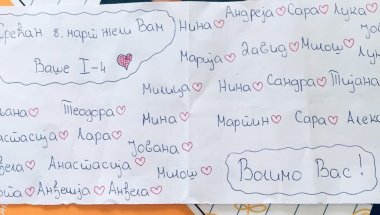 Срећан 8. март жели Вам
Ваше I-4
Нина Андреја Сара Лука
Марија Давид Милош
Милица Нина Сандра Тијана
Теодора Мина Мартин Сара
Лара
Јована
Анастасија Милош
Анђелија Анђела
Волимо Вас!